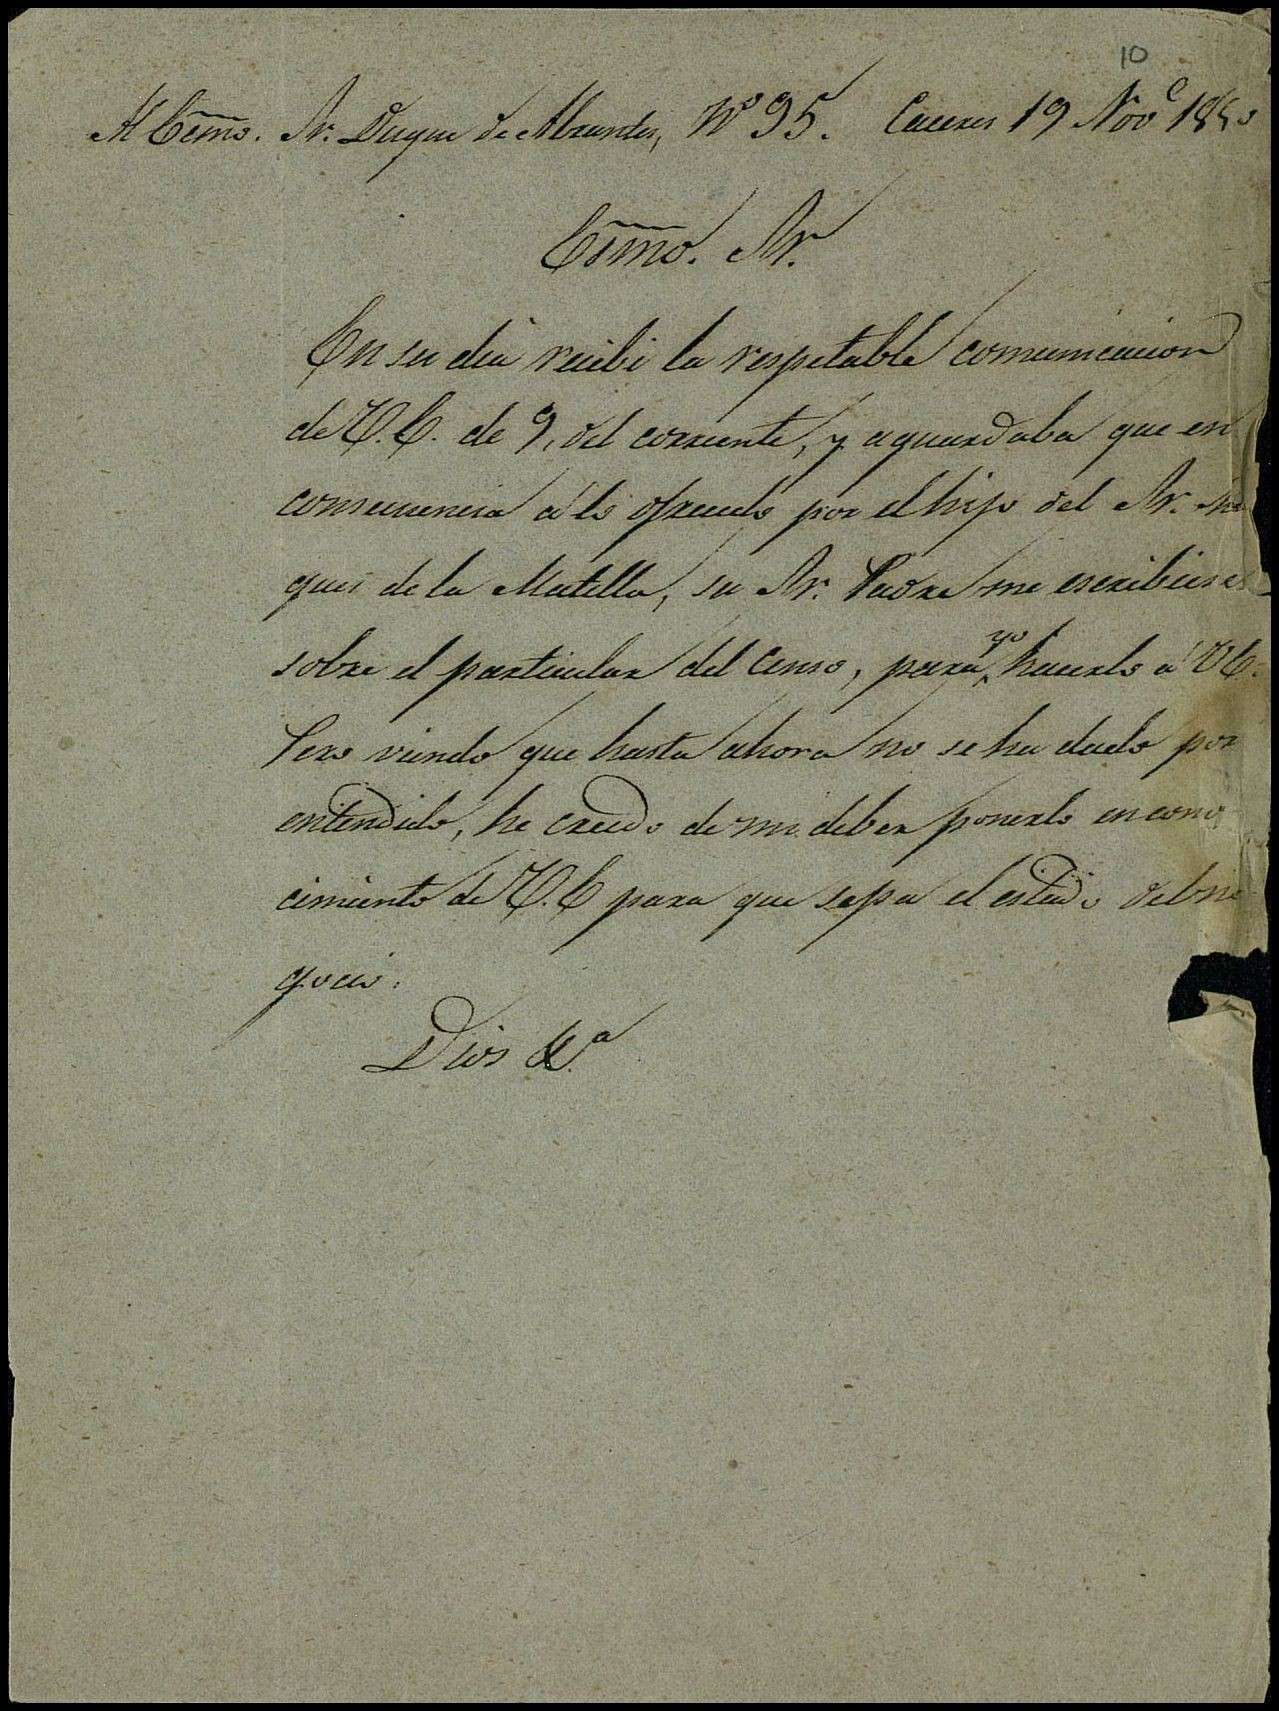 10
Al Exmo. Sr. Duque de Abrantes, Nº 95. Caceres 19 Nov.e 1850
Exmo. Sr.
En su dia recibi la respetable comunicacion
de V.E. de 9, del corriente, y aguardaba que en
consecuencia á lo ofrecido por el hijo del Sr. Mar
qués de la Matilla, su Sr. Padre me escribiese
sobre el particular del censo, para yo hacerlo a V.E.
Pero viendo que hasta ahora no se ha dado por
entendido, he creido de mi deber ponerlo en cono
cimiento de V.E para que sepa el estado del ne
gocio.
Dios &.a